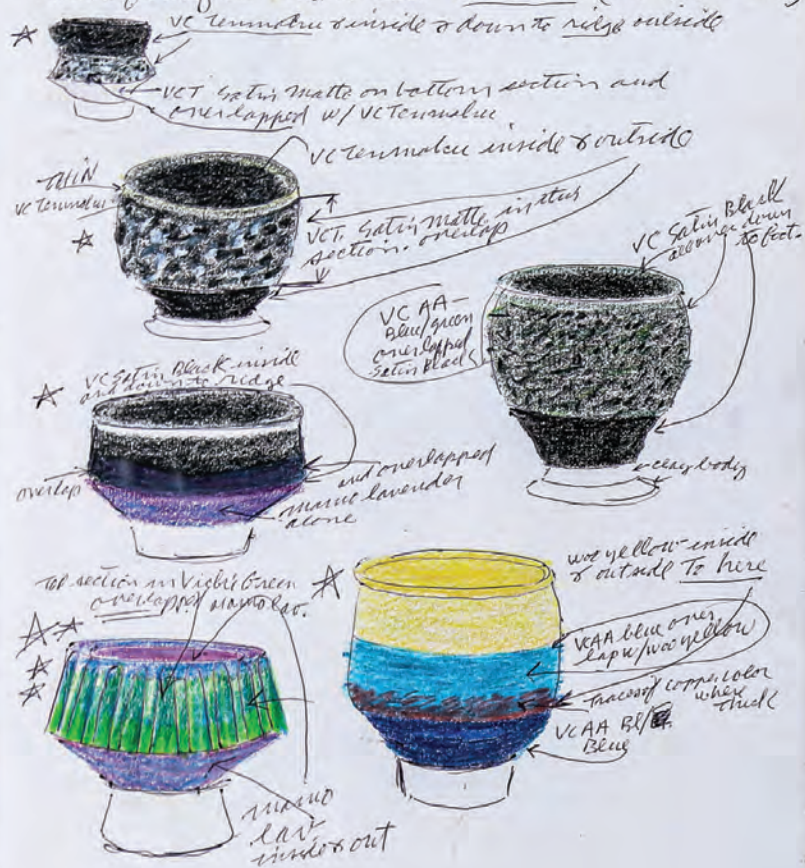 VC Tenmoku inside & down to ridge outside
VCT Satin Matte on bottom section and
overlapped w/ VC Tenmoku
VC Tenmoku inside & outside
THIN
VC Tenmoku
VCT. Satin Matte in this
section. overlap
VC Satin Black
all over down
to foot.
VC AA-
Blue/green
overlapped
Satin Black
VC Satin Black inside
and down to ridge
overlap
and overlapped
mamo lavender
alone
clay body
Top section in Vickie Green
overlapped mamo lav.
woo yellow inside
& outside To here
VCAA blue over
laps/woo yellow
Traces of copper color
where
thick
VCAA Bl/
Blue
mamo
lav
inside & out